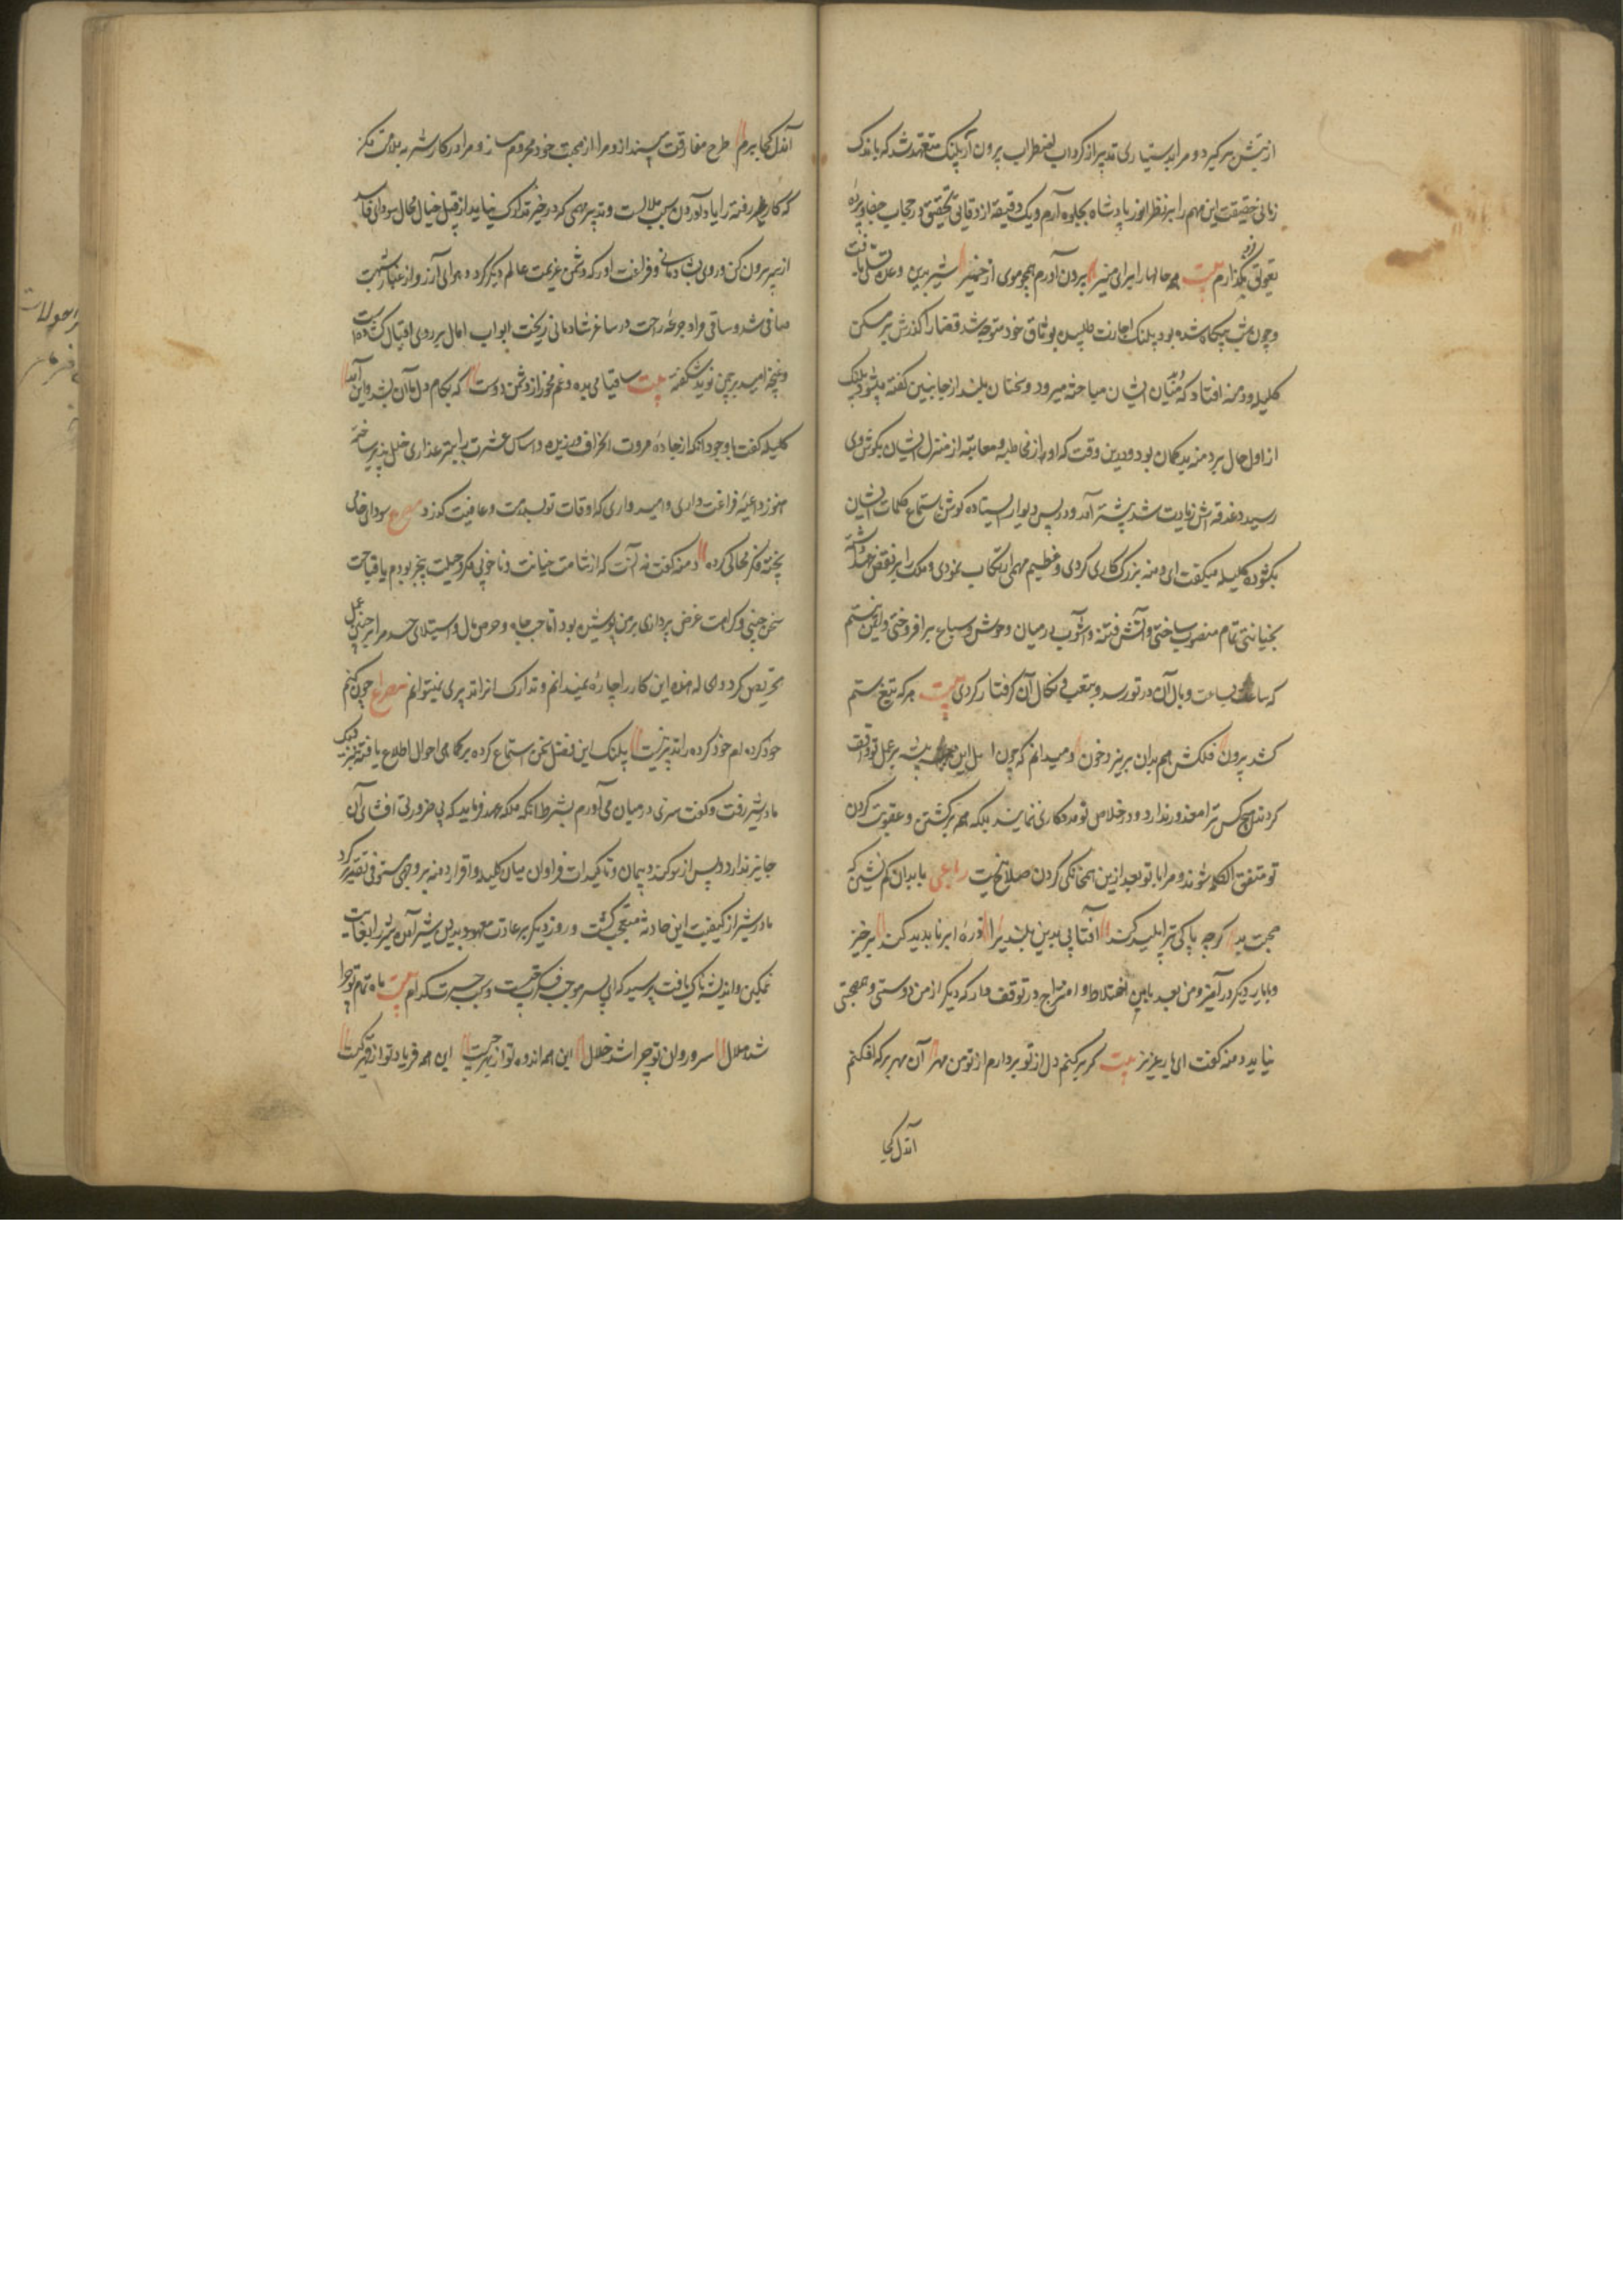 از پیش برگیرد و مرا بدستیاری تدبیر از گرداب اضطراب برون آر پلنگ متعهد شد که باندک
زمانی حقیقت این مهم را بر نظر انور پادشاه بجلوه آرم و یک دقیقه از دقایق تحقیق در حجاب خفا و پرده
تعویق نگذارم بیت همه حالها را برای منیر برون آورم همچو موی از خمیر شیر بدین وعده تسلی یافت
و چون شب بیگاه شده بود پلنگ اجازت طلبیده بوثاق خود متوجه شد قضا را گذرش بر مسکن
کلیله و دمنه افتاد که میان ایشان مباحثه میرود و سخنان بلند از جانبین گفته میشود پلنگ
از اول حال بر دمنه بدگمان بود و درین وقت که آواز مخاطبه و معاتبه از منزل ایشان بگوش وی
رسید دغدغه اش زیادت شد پیشتر آمد و در پس دیوار ایستاده گوش باستماع کلمات ایشان
بگشود کلیله میگفت ای دمنه بزرگ کاری کردی و عظیم مهمی ارتکاب نمودی و ملک را بر نقض عهد داشته
بخیانتی تمام منصوب ساختی و آتش فتنه و آشوب در میان وحوش و سباع برافروختی و ایمن نیستم
که ساعت بساعت وبال آن در تو رسد و بتعب نکال آن گرفتار گردی بیت هر که تیغ ستم
کشد بیرون فلکش هم بدان بریزد خون و میدانم که چون اهل این بیشه بر عمل تو واقف
گردند هیچکس ترا معذور ندارد و در خلاص تو مددکاری ننمایند بلکه همه بر کشتن و عقوبت کردن
تو متفق الکلمه شوند و مرا با تو بعد ازین همخانگی کردن صلاح نیست رباعی با بدان کم نشین که
صحبت بد گرچه پاکی ترا پلید کند آفتابی بدین بلندی را ذره ابر ناپدید کند برخیز
و با یار دیگر در آمیز و من بعد با من اختلاط و امتزاج در توقف دار که دیگر از من دوستی و همصحبتی
نیاید دمنه گفت ای یار عزیز بیت گر برکنم دل از تو بردارم از تو من مهر آن مهر بر که افکنم
آندل کجا
آندل کجا برم طرح مفارقت مینداز و مرا از صحبت خود محروم مساز و مرا در کار شنزبه ملامت مکن
که کار رفته را یاد آوردن سبب ملالست و تدبیر مهمی که در حیز تدارک نیاید از قبیل خیال محال سودای فاسد
از سر بیرون کن و روی بشادمانی و فراغت آور که دشمن عزیمت عالم دیگر کرد و هوای آرزو از غبار شبهت
صافی شد و ساقی مراد جرعه راحت در ساغر شادمانی ریخت ابواب آمال بر روی اقبال گشاده است
و غنچه امید بر چمن نوید شکفته بیت ساقیا می بده و غم مخور از دشمن و دوست که بکام دل ما آن بشد و این آمد
کلیله گفت با وجود آنکه از جاده مروت انحراف ورزیده و اساس عشرت را بتبر غداری خلل پذیر ساخته
هنوز داعیه فراغت داری و امیدواری که اوقات تو بسلامت و عافیت گذرد مصرع سودای خام
پخته فکر محالی کرده دمنه گفت نه آنست که از شامت خیانت و ناخوبی مکر و حیلت بیخبر بودم یا قباحت
سخن چینی و کراهت غرض پردازی بر من پوشیده بود اما حب جاه و حرص مال و استیلای حسد مرا بر چنین عمل
تحریص کرد و حالا این کار را چاره نمیدانم و تدارک آنرا تدبیری نمیتوانم مصراع چون کنم
خود کرده ام خود کرده را تدبیر نیست پلنگ این فصل سخن استماع کرده بر کماهی احوال اطلاع یافته بنزدیک
مادر شیر رفت و گفت سری در میان می آورم بشرط آنکه ملکه عهد فرماید که بی ضرورتی افشای آن
جایز ندارد و پس از سوگند و پیمان و تأکیدات فراوان میان کلیله و اقرار دمنه بر وجهی مستوفی تقریر کرد
مادر شیر از کیفیت این حادثه متعجب گشت و روز دیگر بر عادت معهود بدیدن شیر آمد و شیر را بغایت
غمگین و اندیشه ناک یافت پرسید که ای پسر موجب فکرت چیست و سبب حسرت کدام بیت ماه تمام تو چرا
شد هلال سرو روان تو چرا شد خلال این همه اندوه تو از بهر چیست این همه فریاد تو از قهر کیست